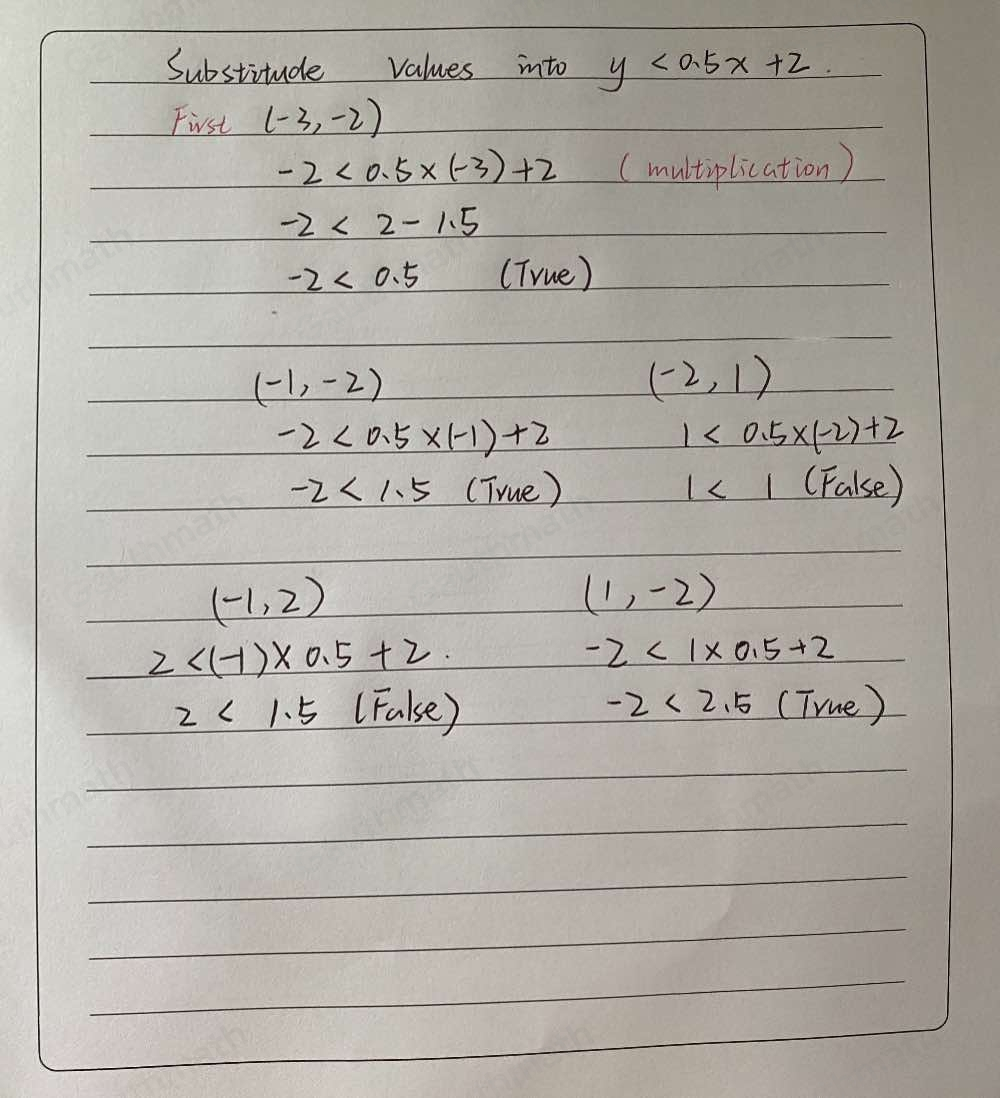 Substitude values into y < 0.5x + 2.
First (-3, -2)
-2 < 0.5 × (-3) + 2 (multiplication)
-2 < 2 - 1.5
-2 < 0.5 (True)
(-1, -2) (-2, 1)
-2 < 0.5 × (-1) + 2 1 < 0.5 × (-2) + 2
-2 < 1.5 (True) 1 < 1 (False)
(-1, 2) (1, -2)
2 < (-1) × 0.5 + 2. -2 < 1 × 0.5 + 2
2 < 1.5 (False) -2 < 2.5 (True)